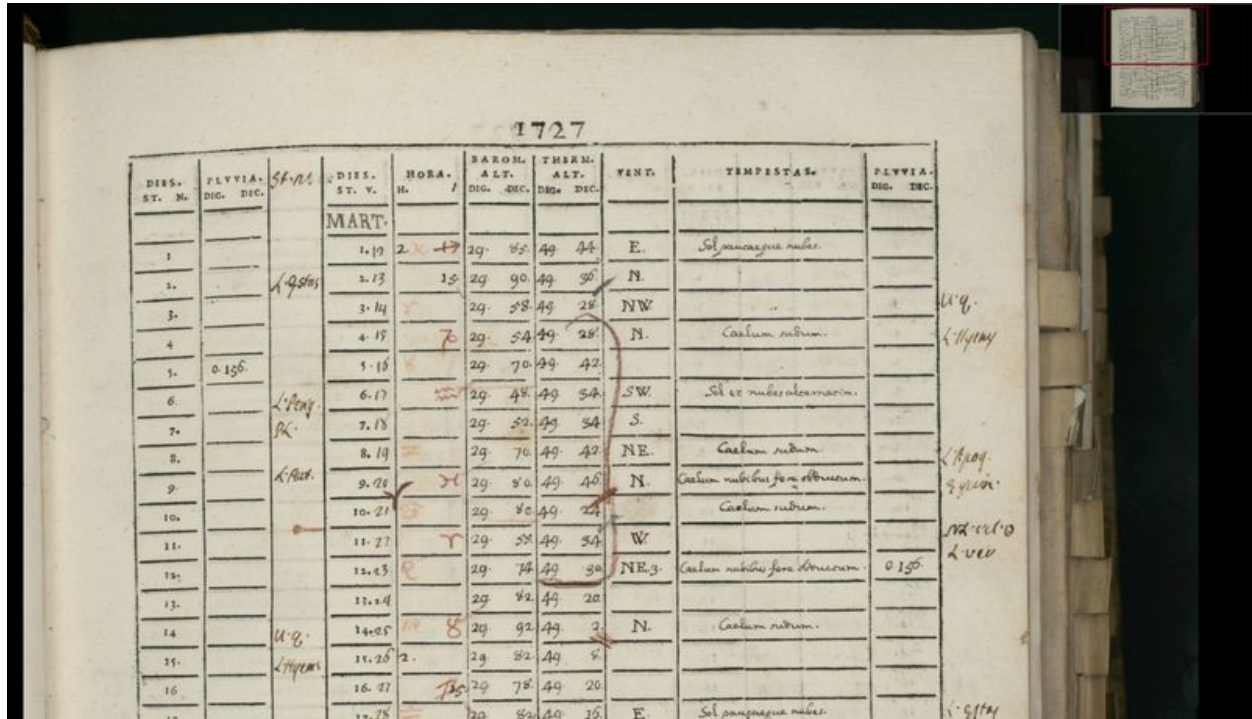 1727
DIES. ST. N. PLVVIA. DIG. DEC. St. N. DIES. ST. V. HORA. H. BAROM. ALT. DIG. DEC. THERM. ALT. DIG. DEC. VENT. TEMPESTAS. PLVVIA. DIG. DEC.
MART.
1 1. 2 29. 85. 49 44 E. Sol paucaeque nubes.
2. 2. 13 15 29. 90. 49. 36 N.
3. 3. 14 29. 58. 49. 28 NW.
4 4. 15 29. 54 49. 28. N. Caelum sudum.
5. 0.156. 5. 16 29. 70. 49. 42
6. 6. 17 29. 48. 49 34 SW. Sol et nubes alternatim.
7. 7. 18 29. 52. 49. 34 S.
8. 8. 19 29. 70. 49. 42 NE. Caelum sudum
9. 9. 20 29. 80. 49. 46 N. Caelum nubibus fere obductum.
10. 10. 21 29. 80 49. 24 Caelum sudum.
11. 11. 22 29. 58. 49. 34 W.
12. 12. 23 29. 74 49 30 NE.3. Caelum nubibus fere obductum. 0 156.
13. 13. 24 29. 82 49. 20
14 14. 25 29. 92 49. 2. N. Caelum sudum.
15. 15. 26 2. 29. 82 49 8
16 16. 27 29 78. 49 20
28 29. 82 49 16 E. Sol paucaeque nubes.